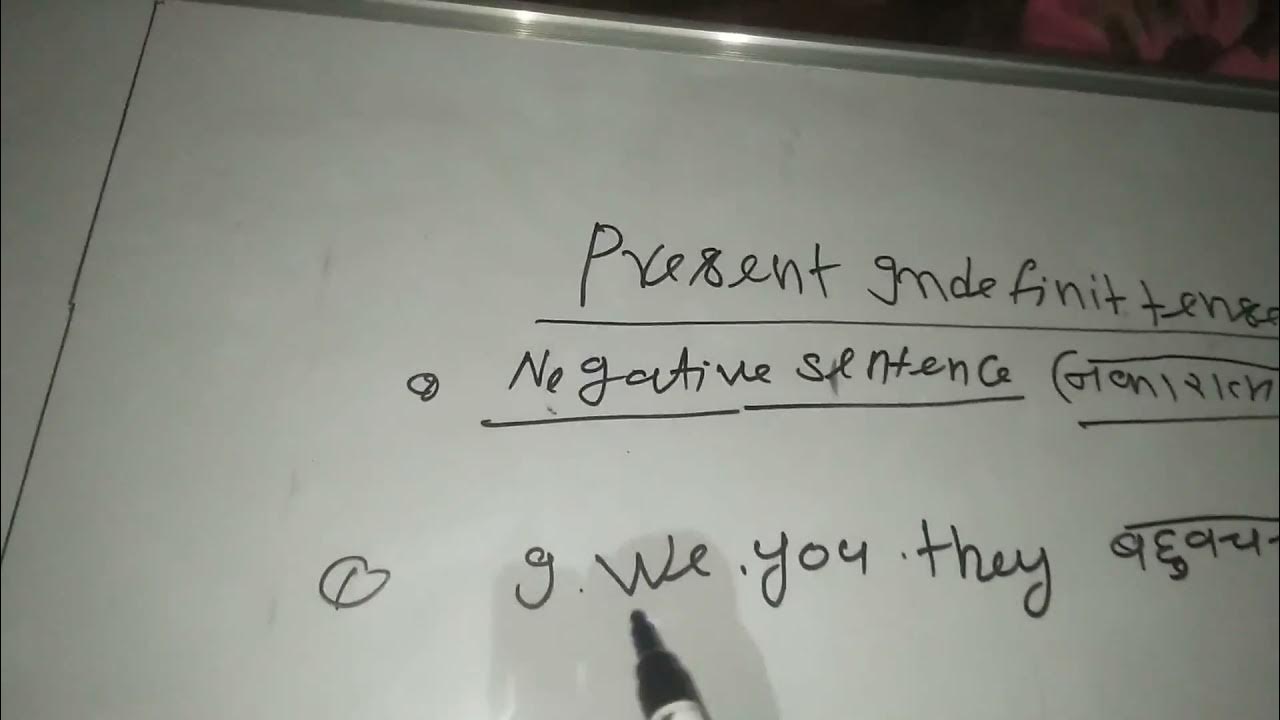 Present Indefinit tense
② Negative sentence (नकारात्म
① I. We. you. they बहुवच